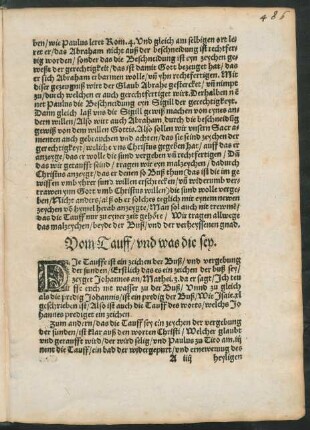 486
ben/ wie Paulus leret Rom. 4. Vnd gleich am selbigen ort le
ret er/ das Abraham nicht auß der beschneidung ist rechtfer
dig worden/ sonder das die Beschneidung ist eyn zeychen ge
weßt der gerechtigkeit/ das ist damit Gott bezeuget hat/ das
er sich Abraham erbarmen wolle/ vñ yhn rechtfertigen. Mit
diser gezeugniß wirt der Glaub Abrahe gestercket/ vñ nimpt
zu/ durch welchen er auch gerechtfertiget wirt. Derhalben nē
net Paulus die Beschneidung eyn Sigill der gerechtigkeyt.
Dann gleich laß wie die Sigill gewiß machen von eynes an
dern willen/ Also wirt auch Abraham durch die beschneidūg
gewiß von dem willen Gottis. Also sollen wir vnsern Sacr a
menten auch gebrauchen vnd achten/ das sie seind zeychen der
gerechtigkeyt/ wuliche vns Christus gegeben hat/ auff das er
anzeyge/ das er wolle die sünd vergeben vñ rechtfertigen/ Dū
das wir getaufft seind/ tragen wir eyn malzeychen/ dadurch
Christus anzeygt/ das er denen so Buß thun/ das ist die im ge
wissen vmb yhrer sünd willen erschrecken/ vñ widerumb ver
trawen ym Gott vmb Christus willen/ die sünd wolle verge
ben/ Nicht anders/ als ob er solches teglich mit eynem newen
zeychen vō hymel herab anzeygte/ Man sol auch nit trewmē/
das die Tauff nur zu eyner zeit gehöre/ Wir tragen allwege
das malzeychen/ beyde der Buß/ vnd der verheyssenen gnad.
Vom Tauff/ vnd was die sey.
DIe Tauffe ist ein zeichen der Buß/ vnd vergebung
der sünden/ Erstlich das es ein zeichen der buß sey/
zeyget Johannes an. Mathei. 3. da er sagt/ Ich teu
ffe euch mit wasser zu der Buß/ Vnnd zu gleich
als die predig Johannis/ ist ein predig der Buß/ Wie Isaie. 21
geschrieben ist/ Also ist auch die Tauff des worts/ welchs Jo
hannes prediget ein zeichen.
Zum andern/ das die Tauff sey ein zeychen der vergebung
der sünden/ ist klar auß den worten Christi/ Welcher glaubt
vnd getaufft wird/ der wird selig/ vnd Paulus zu Tito am. iij
nent die Tauff/ ein bad der widergepurt/ vnd ernewrung des
A iiij heyligen